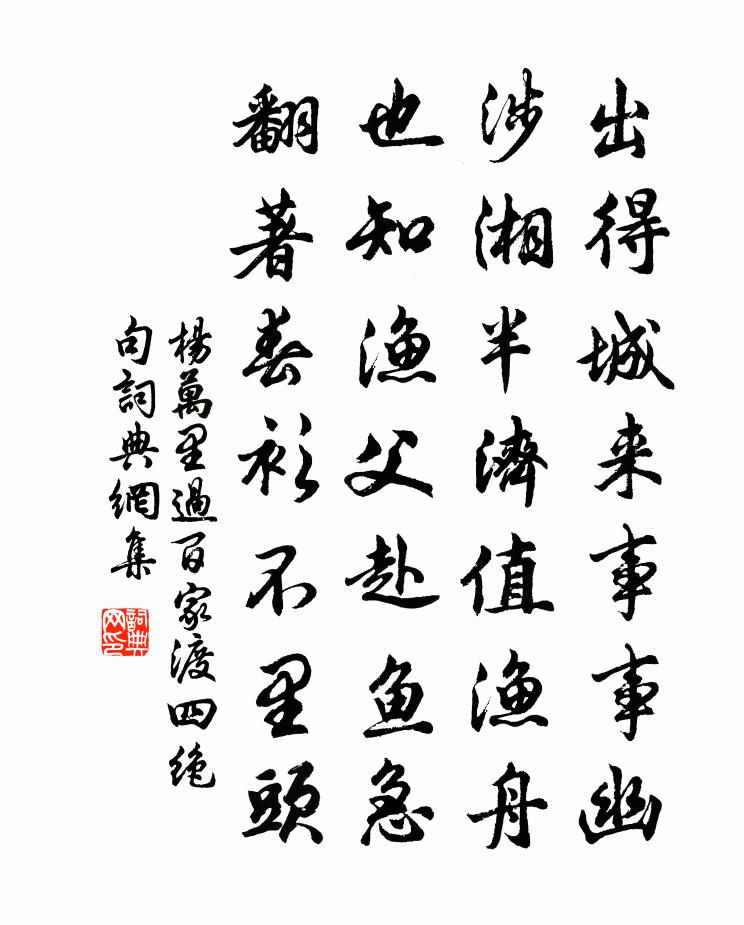 出得城来事事幽
涉湘半濟值渔舟
也知渔父赴鱼急
翻著春衫不里頭
楊萬里過百家渡四絶
句詞典網集
詞典网印